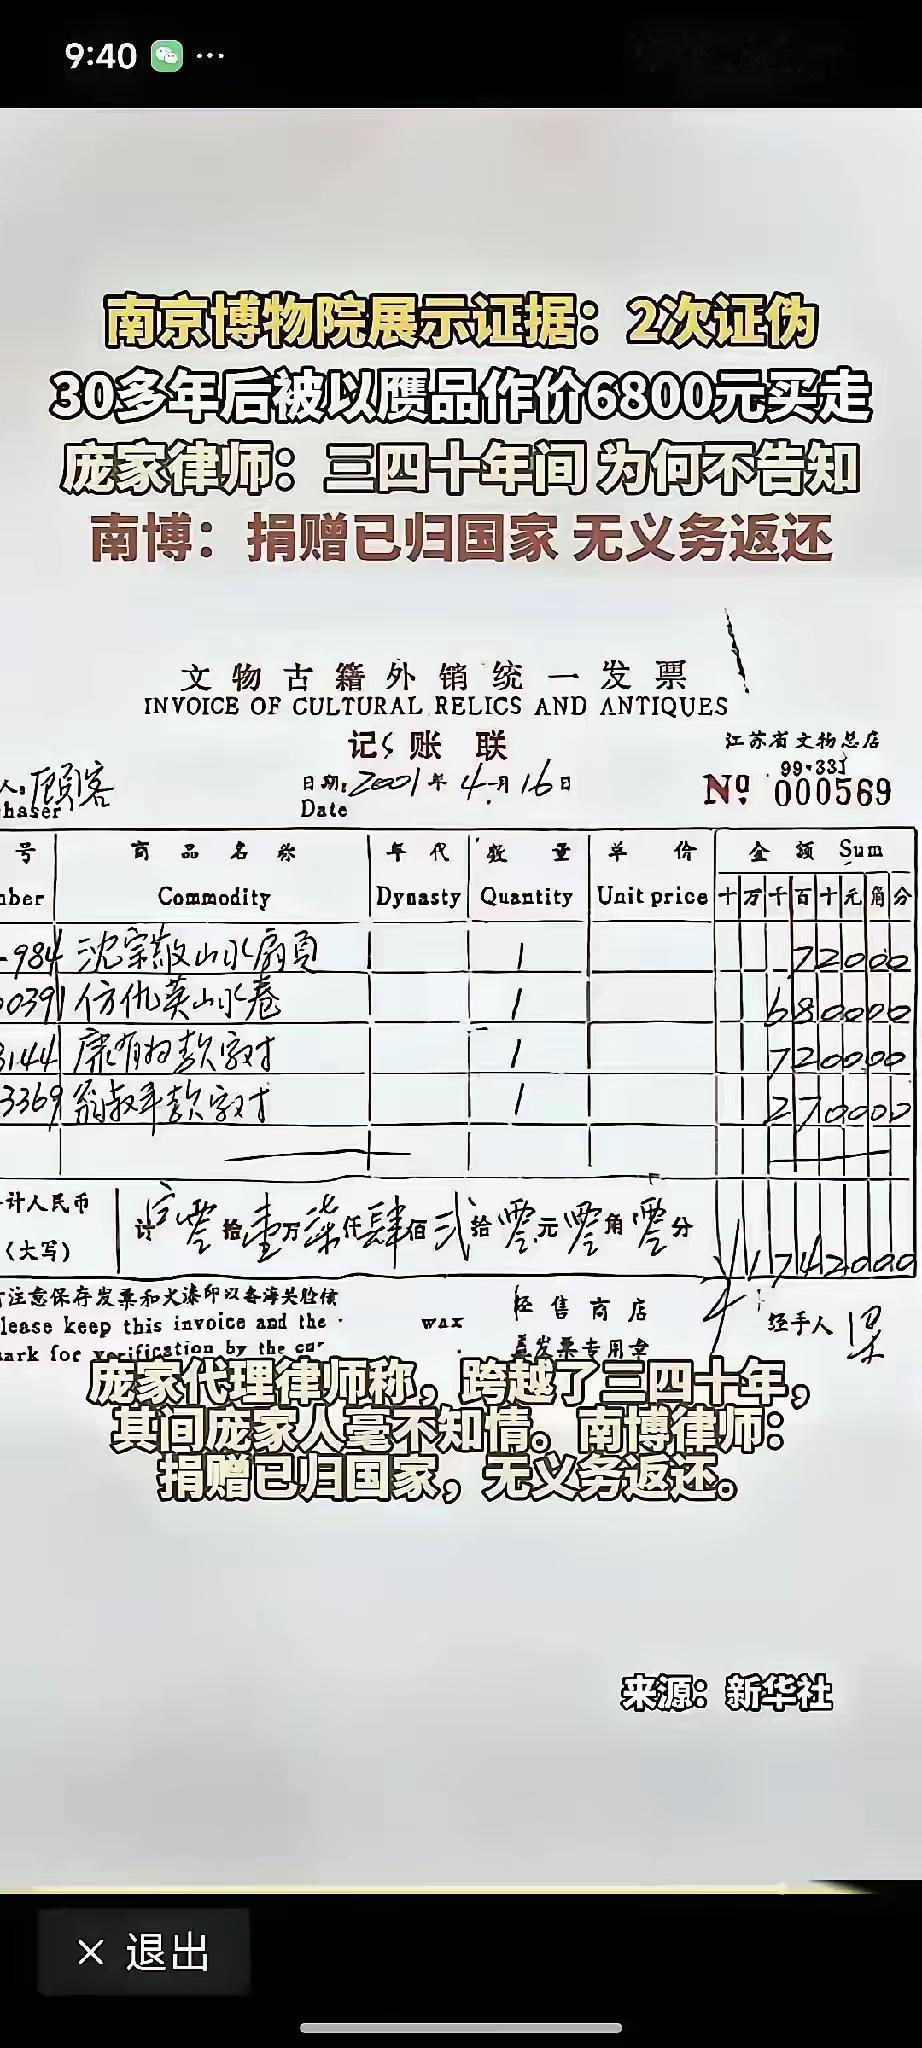 9:40 ...
南京博物院展示证据：2次证伪
30多年后被以赝品作价6800元买走
庞家律师：三四十年间 为何不告知
南博：捐赠已归国家 无义务返还
文物古籍外销统一发票
INVOICE OF CULTURAL RELICS AND ANTIQUES
记账联
江苏省文物总店
人：顾客
haser
日期：2001年4月16日
Date
99·33J
№ 000569
号 商品名称 年代 数量 单价 金额 Sum
nber Commodity Dynasty Quantity Unit price 十万千百十元角分
-984 沈宗敬山水扇页 1 72000
0391 仿仇英山水卷 1 680000
3144 康有为款字对 1 720000
3369 翁叔平款字对 1 270000
计人民币
（大写）
计 零拾壹万柒仟肆佰贰拾零元零角零分 ¥1742000
注意保存发票和火漆印以备海关验核
lease keep this invoice and the wax
mark for verification by the cu
经售商店
盖发票专用章
经手人
庞家代理律师称，跨越了三四十年，
其间庞家人毫不知情。南博律师：
捐赠已归国家，无义务返还。
来源：新华社
× 退出